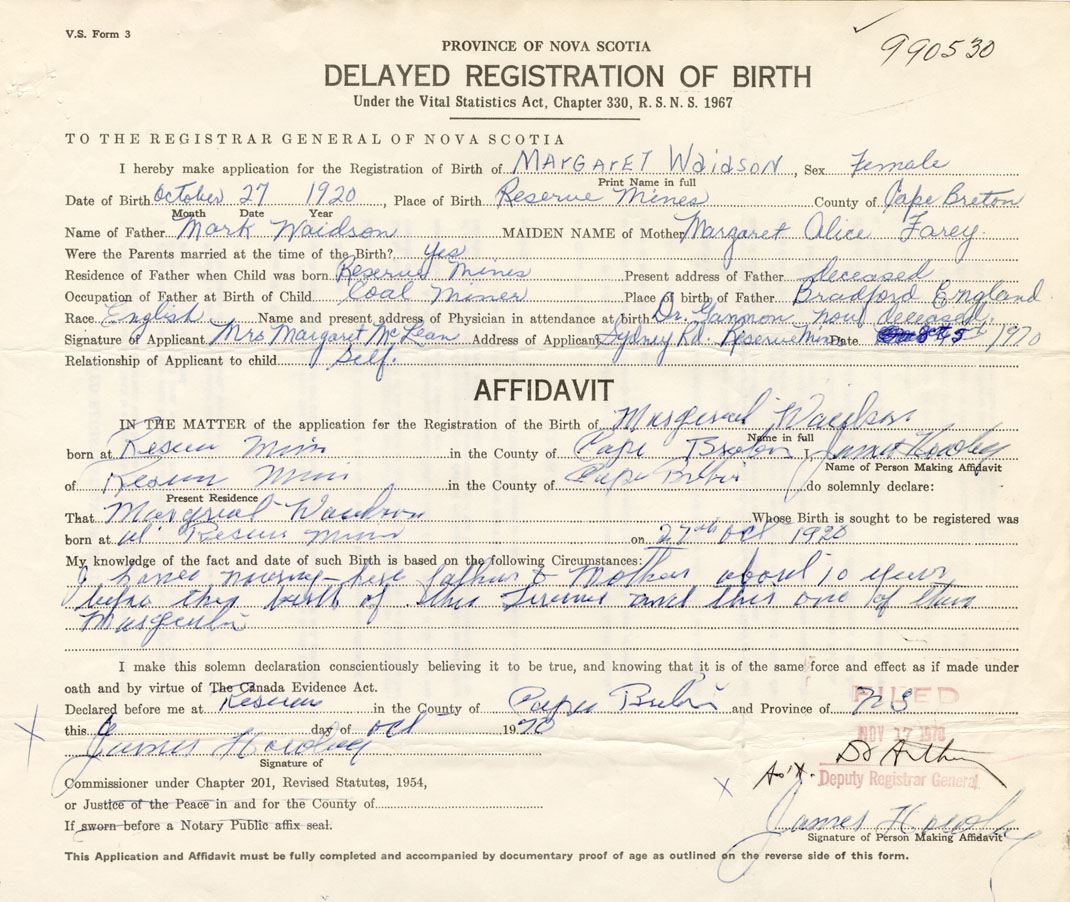 V.S. Form 3
990530
PROVINCE OF NOVA SCOTIA
DELAYED REGISTRATION OF BIRTH
Under the Vital Statistics Act, Chapter 330, R.S.N.S. 1967
TO THE REGISTRAR GENERAL OF NOVA SCOTIA
I hereby make application for the Registration of Birth of MARGARET WAIDSON, Sex Female
Print Name in full
Date of Birth October 27 1920, Place of Birth Reserve Mines County of Cape Breton
Month Date Year
Name of Father Mark Waidson MAIDEN NAME of Mother Margaret Alice Farey.
Were the Parents married at the time of the Birth? Yes
Residence of Father when Child was born Reserve Mines Present address of Father deceased
Occupation of Father at Birth of Child Coal Miner Place of birth of Father Bradford England
Race English Name and present address of Physician in attendance at birth Dr. Gannon now deceased.
Signature of Applicant Mrs Margaret McLean Address of Applicant Sydney Rd. Reserve Mines Date Oct 5 1970
Relationship of Applicant to child Self.
AFFIDAVIT
IN THE MATTER of the application for the Registration of the Birth of Waidson
Name in full
born at in the County of Cape I, James Howley
Name of Person Making Affidavit
of in the County of Cape do solemnly declare:
Present Residence
That Whose Birth is sought to be registered was
born at on 27th Oct 1920
My knowledge of the fact and date of such Birth is based on the following Circumstances:
father & Mother about 10 years
birth of this and this one of them
I make this solemn declaration conscientiously believing it to be true, and knowing that it is of the same force and effect as if made under
oath and by virtue of The Canada Evidence Act.
Declared before me at in the County of Cape and Province of NS
FILED
this 6 day of Oct 1970
NOV 17 1970
James Howley
Signature of
Deputy Registrar General
Commissioner under Chapter 201, Revised Statutes, 1954,
or Justice of the Peace in and for the County of
James Howley
If sworn before a Notary Public affix seal.
Signature of Person Making Affidavit
This Application and Affidavit must be fully completed and accompanied by documentary proof of age as outlined on the reverse side of this form.